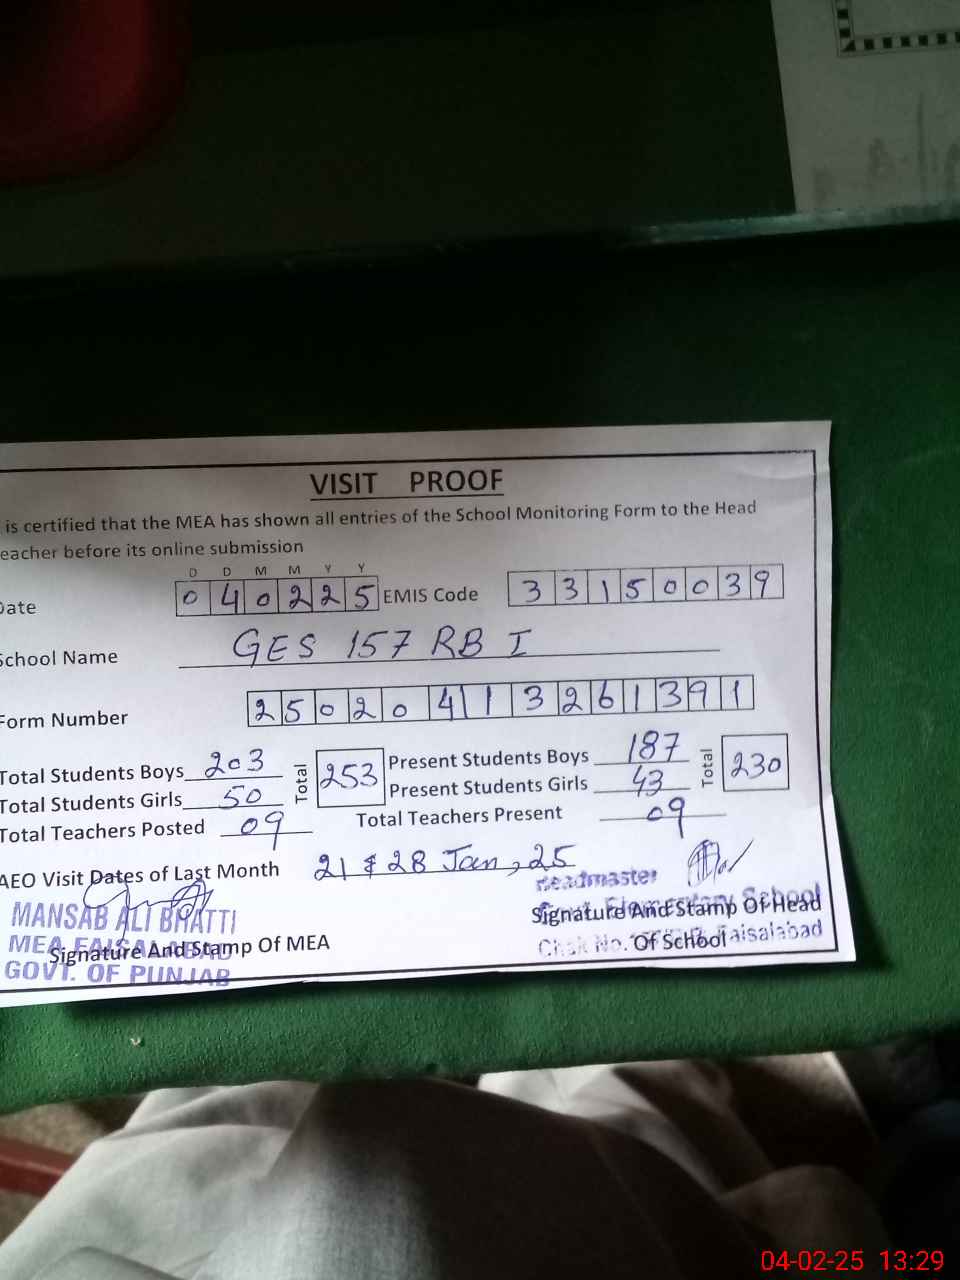 VISIT PROOF
is certified that the MEA has shown all entries of the School Monitoring Form to the Head
eacher before its online submission
D D M M Y Y
Date 040225 EMIS Code 33150039
School Name GES 157 RB I
Form Number 25020413261391
Total Students Boys 203 Total 253 Present Students Boys 187 Total 230
Total Students Girls 50 Present Students Girls 43
Total Teachers Posted 09 Total Teachers Present 09
AEO Visit Dates of Last Month 21 & 28 Jan, 25
Headmaster
MANSAB ALI BHATTI
Govt. Elementary School
Signature And Stamp Of Head
MEA FAISALABAD
Signature And Stamp Of MEA
Chak No. Faisalabad
Of School
GOVT. OF PUNJAB
04-02-25 13:29